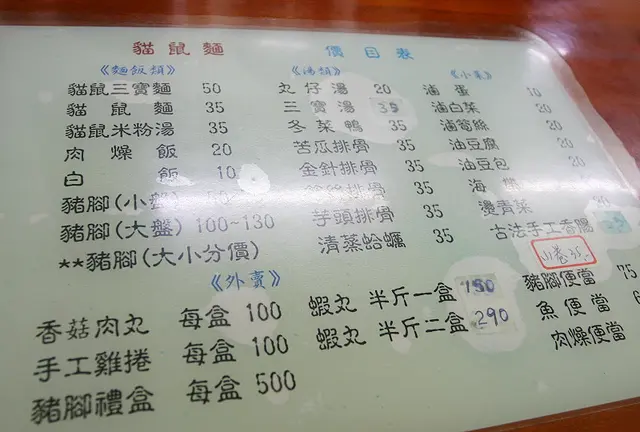 貓鼠麵 價目表
《麵飯類》
貓鼠三寶麵 50
貓鼠麵 35
貓鼠米粉湯 35
肉燥飯 20
白飯 10
豬腳(小盤)
豬腳(大盤) 100~130
**豬腳(大小分價)
《湯類》
丸仔湯 20
三寶湯 35
冬菜鴨 35
苦瓜排骨 35
金針排骨 35
排骨 35
芋頭排骨 35
清蒸蛤蠣 35
《小菜》
滷蛋 10
滷白菜 20
滷筍絲 20
油豆腐 20
油豆包 20
海
燙青菜 20
古法手工香腸
《外賣》
香菇肉丸 每盒 100
手工雞捲 每盒 100
豬腳禮盒 每盒 500
蝦丸 半斤一盒 150
蝦丸 半斤二盒 290
豬腳便當 75
魚便當
肉燥便當